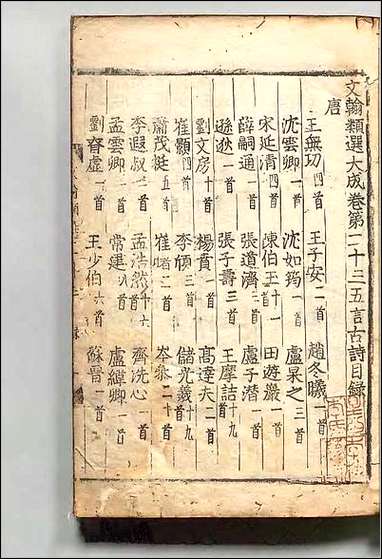 文翰類選大成卷第二十二五言古詩目録
唐
王無功四首 王子安一首 趙冬曦一首
沈雲卿一首 沈如筠一首 盧杲之三首
宋延清四首 陳伯玉十一首 田遊巖一首
薛嗣通一首 張道濟三首 盧子潛一首
逖一首 張子壽三首 王摩詰十九首
劉文房十首 楊賁一首 高達夫二首
崔顥四首 李頎二首 儲光羲十首
蕭茂挺五首 崔曙二首 岑參二十首
李遐叔三首 孟浩然十六首 齊洗心一首
孟雲卿一首 常建八首 盧緯卿一首
劉脊虛一首 王少伯六首 蘇晉一首